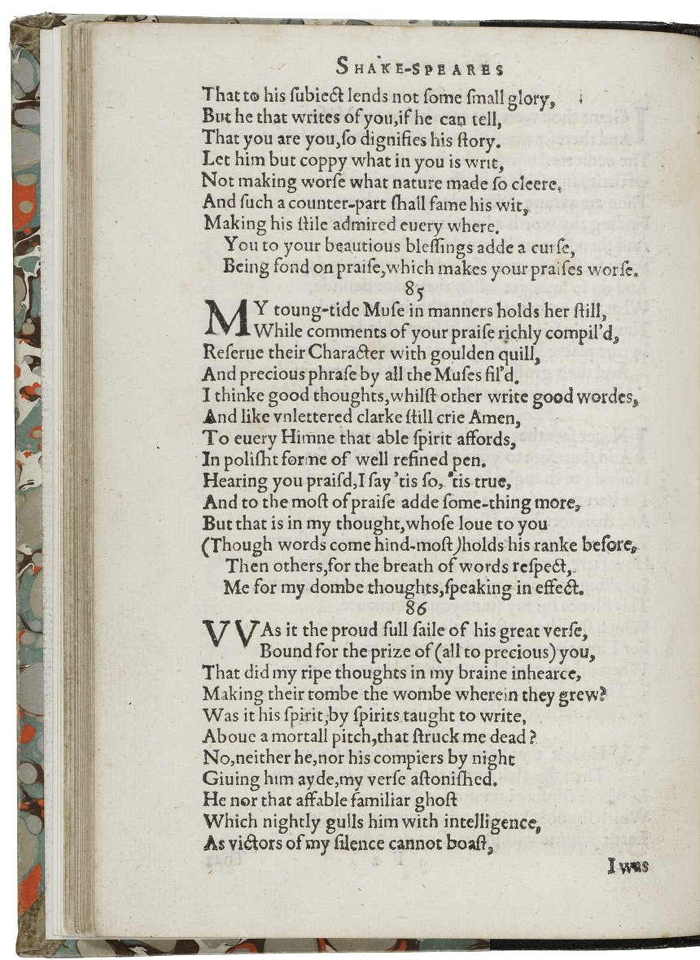 SHAKE-SPEARES
That to his ſubiect lends not ſome ſmall glory,
But he that writes of you,if he can tell,
That you are you,ſo dignifies his ſtory.
Let him but coppy what in you is writ,
Not making worſe what nature made ſo cleere,
And ſuch a counter-part ſhall fame his wit,
Making his ſtile admired euery where.
You to your beautious bleſſings adde a curſe,
Being fond on praiſe,which makes your praiſes worſe.
85
MY toung-tide Muſe in manners holds her ſtill,
While comments of your praiſe richly compil'd,
Reſerue their Character with goulden quill,
And precious phraſe by all the Muſes fil'd.
I thinke good thoughts,whilſt other write good wordes,
And like vnlettered clarke ſtill crie Amen,
To euery Himne that able ſpirit affords,
In poliſht forme of well refined pen.
Hearing you praiſd,I ſay 'tis ſo, 'tis true,
And to the moſt of praiſe adde ſome-thing more,
But that is in my thought,whoſe loue to you
(Though words come hind-moſt)holds his ranke before,
Then others,for the breath of words reſpect,
Me for my dombe thoughts,ſpeaking in effect.
86
VVAs it the proud full ſaile of his great verſe,
Bound for the prize of (all to precious) you,
That did my ripe thoughts in my braine inhearce,
Making their tombe the wombe wherein they grew?
Was it his ſpirit,by ſpirits taught to write,
Aboue a mortall pitch,that ſtruck me dead?
No,neither he,nor his compiers by night
Giuing him ayde,my verſe aſtoniſhed.
He nor that affable familiar ghoſt
Which nightly gulls him with intelligence,
As victors of my ſilence cannot boaſt,
I was